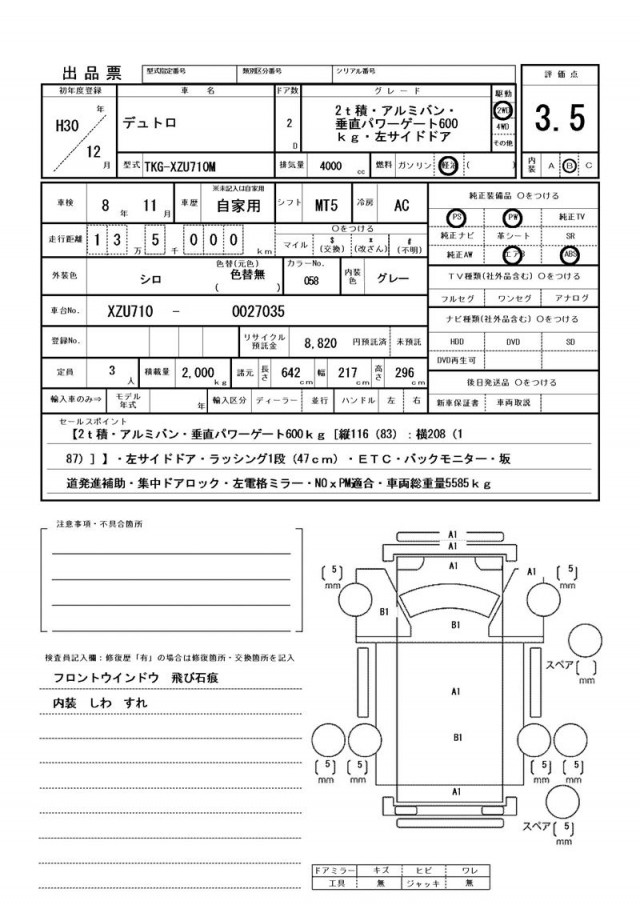 出品票 型式指定番号 類別区分番号 シリアル番号
初年度登録 車名 ドア数 グレード 駆動 評価点
H30年 デュトロ 2D 2t積・アルミバン・ 2WD 3.5
垂直パワーゲート600 4WD
12月 kg・左サイドドア その他
型式 TKG-XZU710M 排気量 4000cc 燃料 ガソリン 軽油 ( ) 内装 A B C
車検 8年 11月 車歴 ※未記入は自家用 自家用 シフト MT5 冷房 AC 純正装備品 〇をつける
走行距離 13万 5千 000km 〇をつける PS PW 純正TV
マイル $(交換) *(改ざん) #(不明) 純正ナビ 革シート SR
純正AW エアB ABS
外装色 シロ 色替(元色) 色替無 ( ) カラーNo. 058 内装色 グレー TV種類(社外品含む) 〇をつける
フルセグ ワンセグ アナログ
車台No. XZU710 - 0027035 ナビ種類(社外品含む) 〇をつける
登録No. リサイクル預託金 8,820 円預託済 未預託 HDD DVD SD
DVD再生可
定員 3人 積載量 2,000kg 諸元 長さ 642cm 幅 217cm 高さ 296cm 後日発送品 〇をつける
輸入車のみ⇒ モデル年式 年 輸入区分 ディーラー 並行 ハンドル 左 右 新車保証書 車両取説
セールスポイント
【2t積・アルミバン・垂直パワーゲート600kg[縦116(83):横208(1
87)]】・左サイドドア・ラッシング1段(47cm)・ETC・バックモニター・坂
道発進補助・集中ドアロック・左電格ミラー・NOxPM適合・車両総重量5585kg
注意事項・不具合箇所
検査員記入欄:修復歴「有」の場合は修復箇所・交換箇所を記入
フロントウインドウ 飛び石痕
内装 しわ すれ
A1
A1
A1
A1
[5]mm [5]mm
B1
B1
スペア[ ]mm
A1
B1
[5]mm [5]mm [5]mm [5]mm
A1
スペア[5]mm
ドアミラー キズ ヒビ ワレ
工具 無 ジャッキ 無